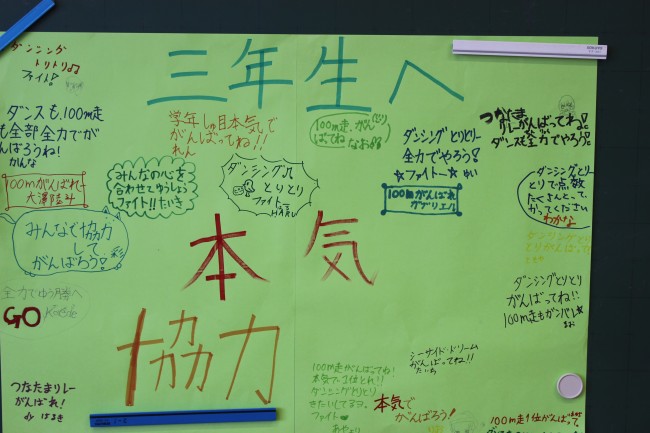 三年生へ
ダンシング
トリトリ♪♪
ファイト!
ダンスも、100m走
も全部全力でが
んばろうね!
かんな
学年しゅ目本気で
がんばってね!!
れん
100m走、がん
ばってね
なお
ダンシングとりとり
全力でやろう!
☆ファイト☆ ゆい
つなたま
リレーがんばってね!
ダンスも全力でやろう!
100mがんばれ
大澤陸斗
みんなの心を
合わせてゆうしょう
ファイト!!たいき
ダンシング♪
とりとり
ファイト
100mがんばれ
ガブリエル
ダンシングとり
とりで点数
たくさんとって、
かってください
わかな
みんなで協力
して
がんばろう!
本気
ダンシングとり
とりがんばって
全力でゆう勝へ
GO
ダンシングとりとり
がんばってね!!
100m走もガンバレ
協力
つなたまリレー
がんばれ!
by はるき
シーサイド・ドリーム
がんばってね!!
たいち
100m走がんばってね!
本気で1位とれ!!
ダンシングとりとり
きたいしてるヨ
ファイト
あやり
本気で
がんばろう!
100m走1位がんば